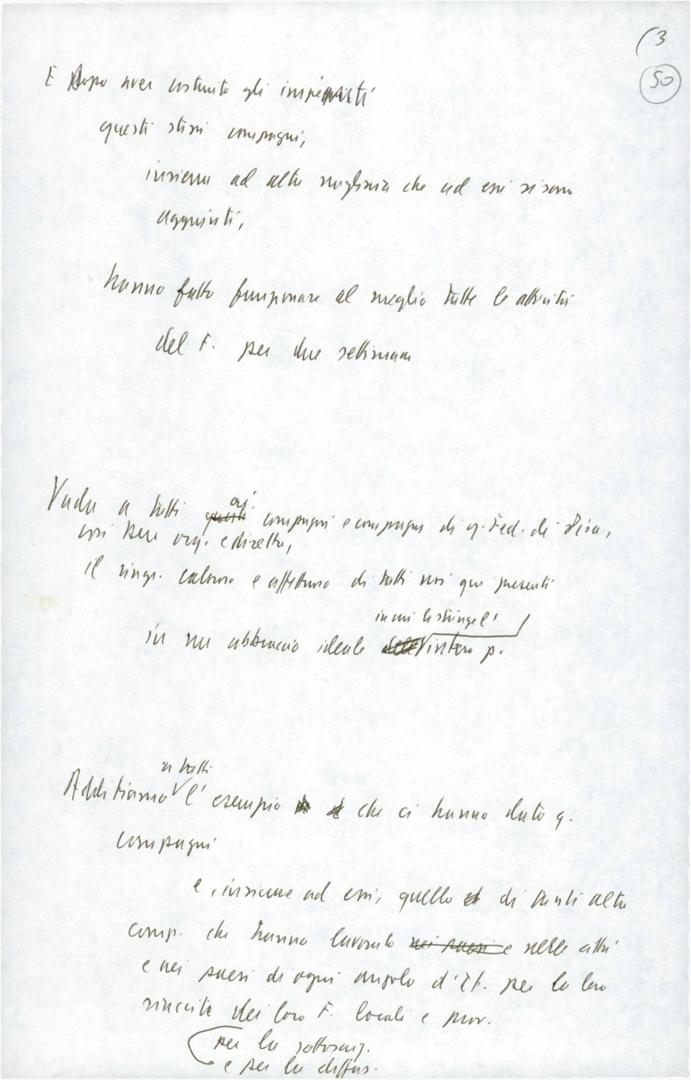 (3
50
E dopo aver costruito gli impianti
questi stessi compagni,
insieme ad altre migliaia che ad essi si sono
aggiunti,
hanno fatto funzionare al meglio tutte le attività
del F. per due settimane
Vada a tutti questi ai compagni e compagne di q. Fed. di Pisa,
così bene org. e diretta,
il ringr. caloroso e affettuoso di tutti noi qui presenti
in cui le stringe l'
in un abbraccio ideale intero p.
a tutti
Additiamo l'esempio che ci hanno dato q.
compagni
e, insieme ad essi, quello di tanti altri
comp. che hanno lavorato nei paesi e nelle città
e nei paesi di ogni angolo d'It. per la loro
riuscita dei loro F. locali e prov.
per la sottoscriz.
e per la diffus.